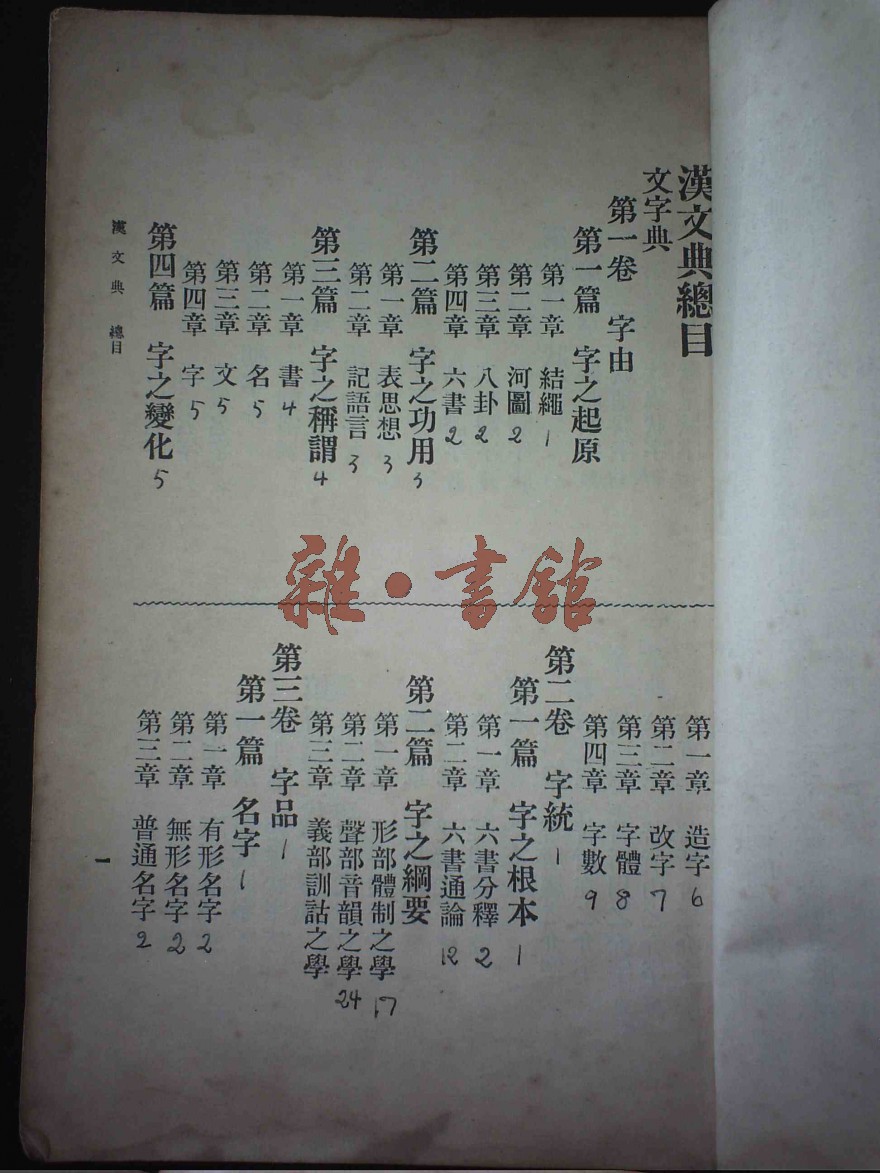 漢文典總目
文字典
第一卷 字由
第一篇 字之起原
第一章 結繩 1
第二章 河圖 2
第三章 八卦 2
第四章 六書 2
第二篇 字之功用 3
第一章 表思想 3
第二章 記語言 3
第三篇 字之稱謂 4
第一章 書 4
第二章 名 5
第三章 文 5
第四章 字 5
第四篇 字之變化 5
第一章 造字 6
第二章 改字 7
第三章 字體 8
第四章 字數 9
第二卷 字統 1
第一篇 字之根本 1
第一章 六書分釋 2
第二章 六書通論 12
第二篇 字之綱要
第一章 形部體制之學 17
第二章 聲部音韻之學 24
第三章 義部訓詁之學
第三卷 字品 1
第一篇 名字 1
第一章 有形名字 2
第二章 無形名字 2
第三章 普通名字 2
漢文典 總目
一
雜·書館